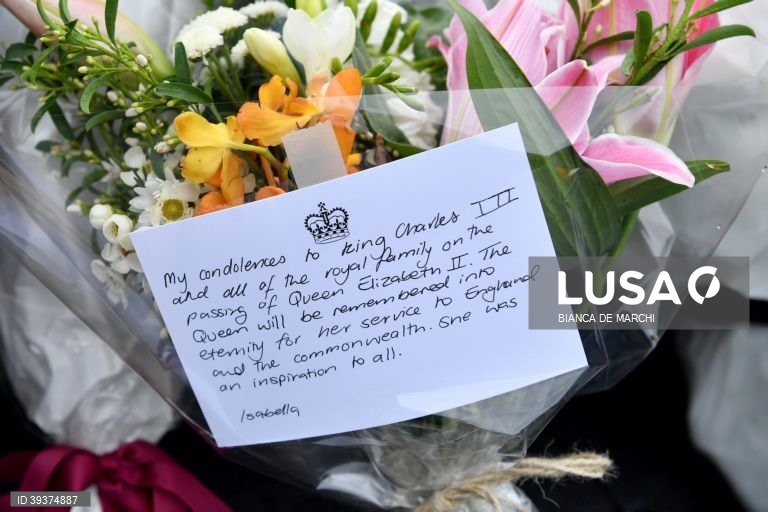 My condolences to King Charles III
and all of the royal family on the
passing of Queen Elizabeth II. The
Queen will be remembered into
eternity for her service to England
and the commonwealth. She was
an inspiration to all.
Isabella
LUSA
BIANCA DE MARCHI
ID 39374887